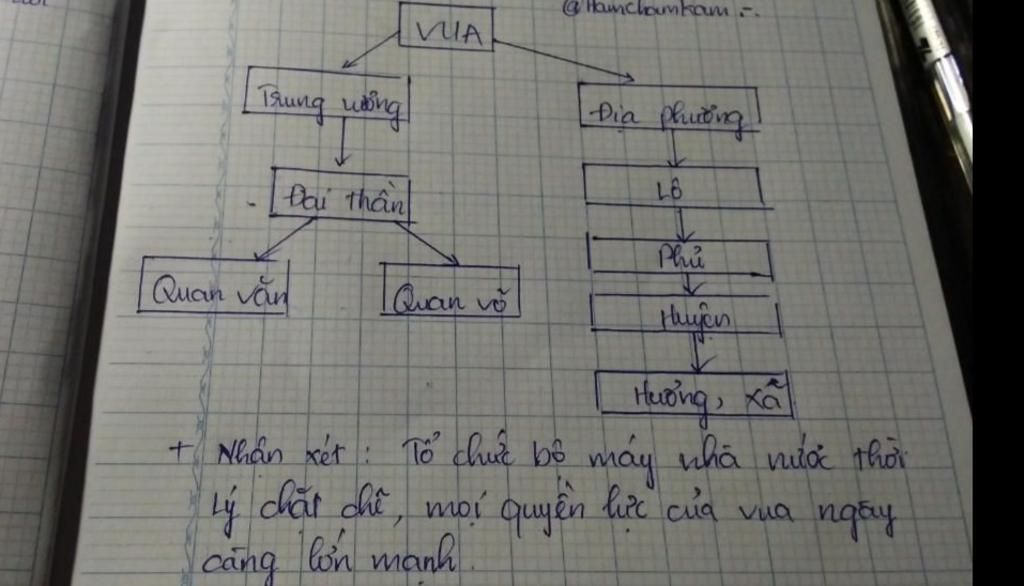 @Hamchamkam
VUA
Trung ương
Địa phương
Đại thần
Lộ
Phủ
Quan văn
Quan võ
Huyện
Hương, xã
+ Nhận xét : Tổ chức bộ máy nhà nước thời
Lý chặt chẽ, mọi quyền lực của vua ngày
càng lớn mạnh.